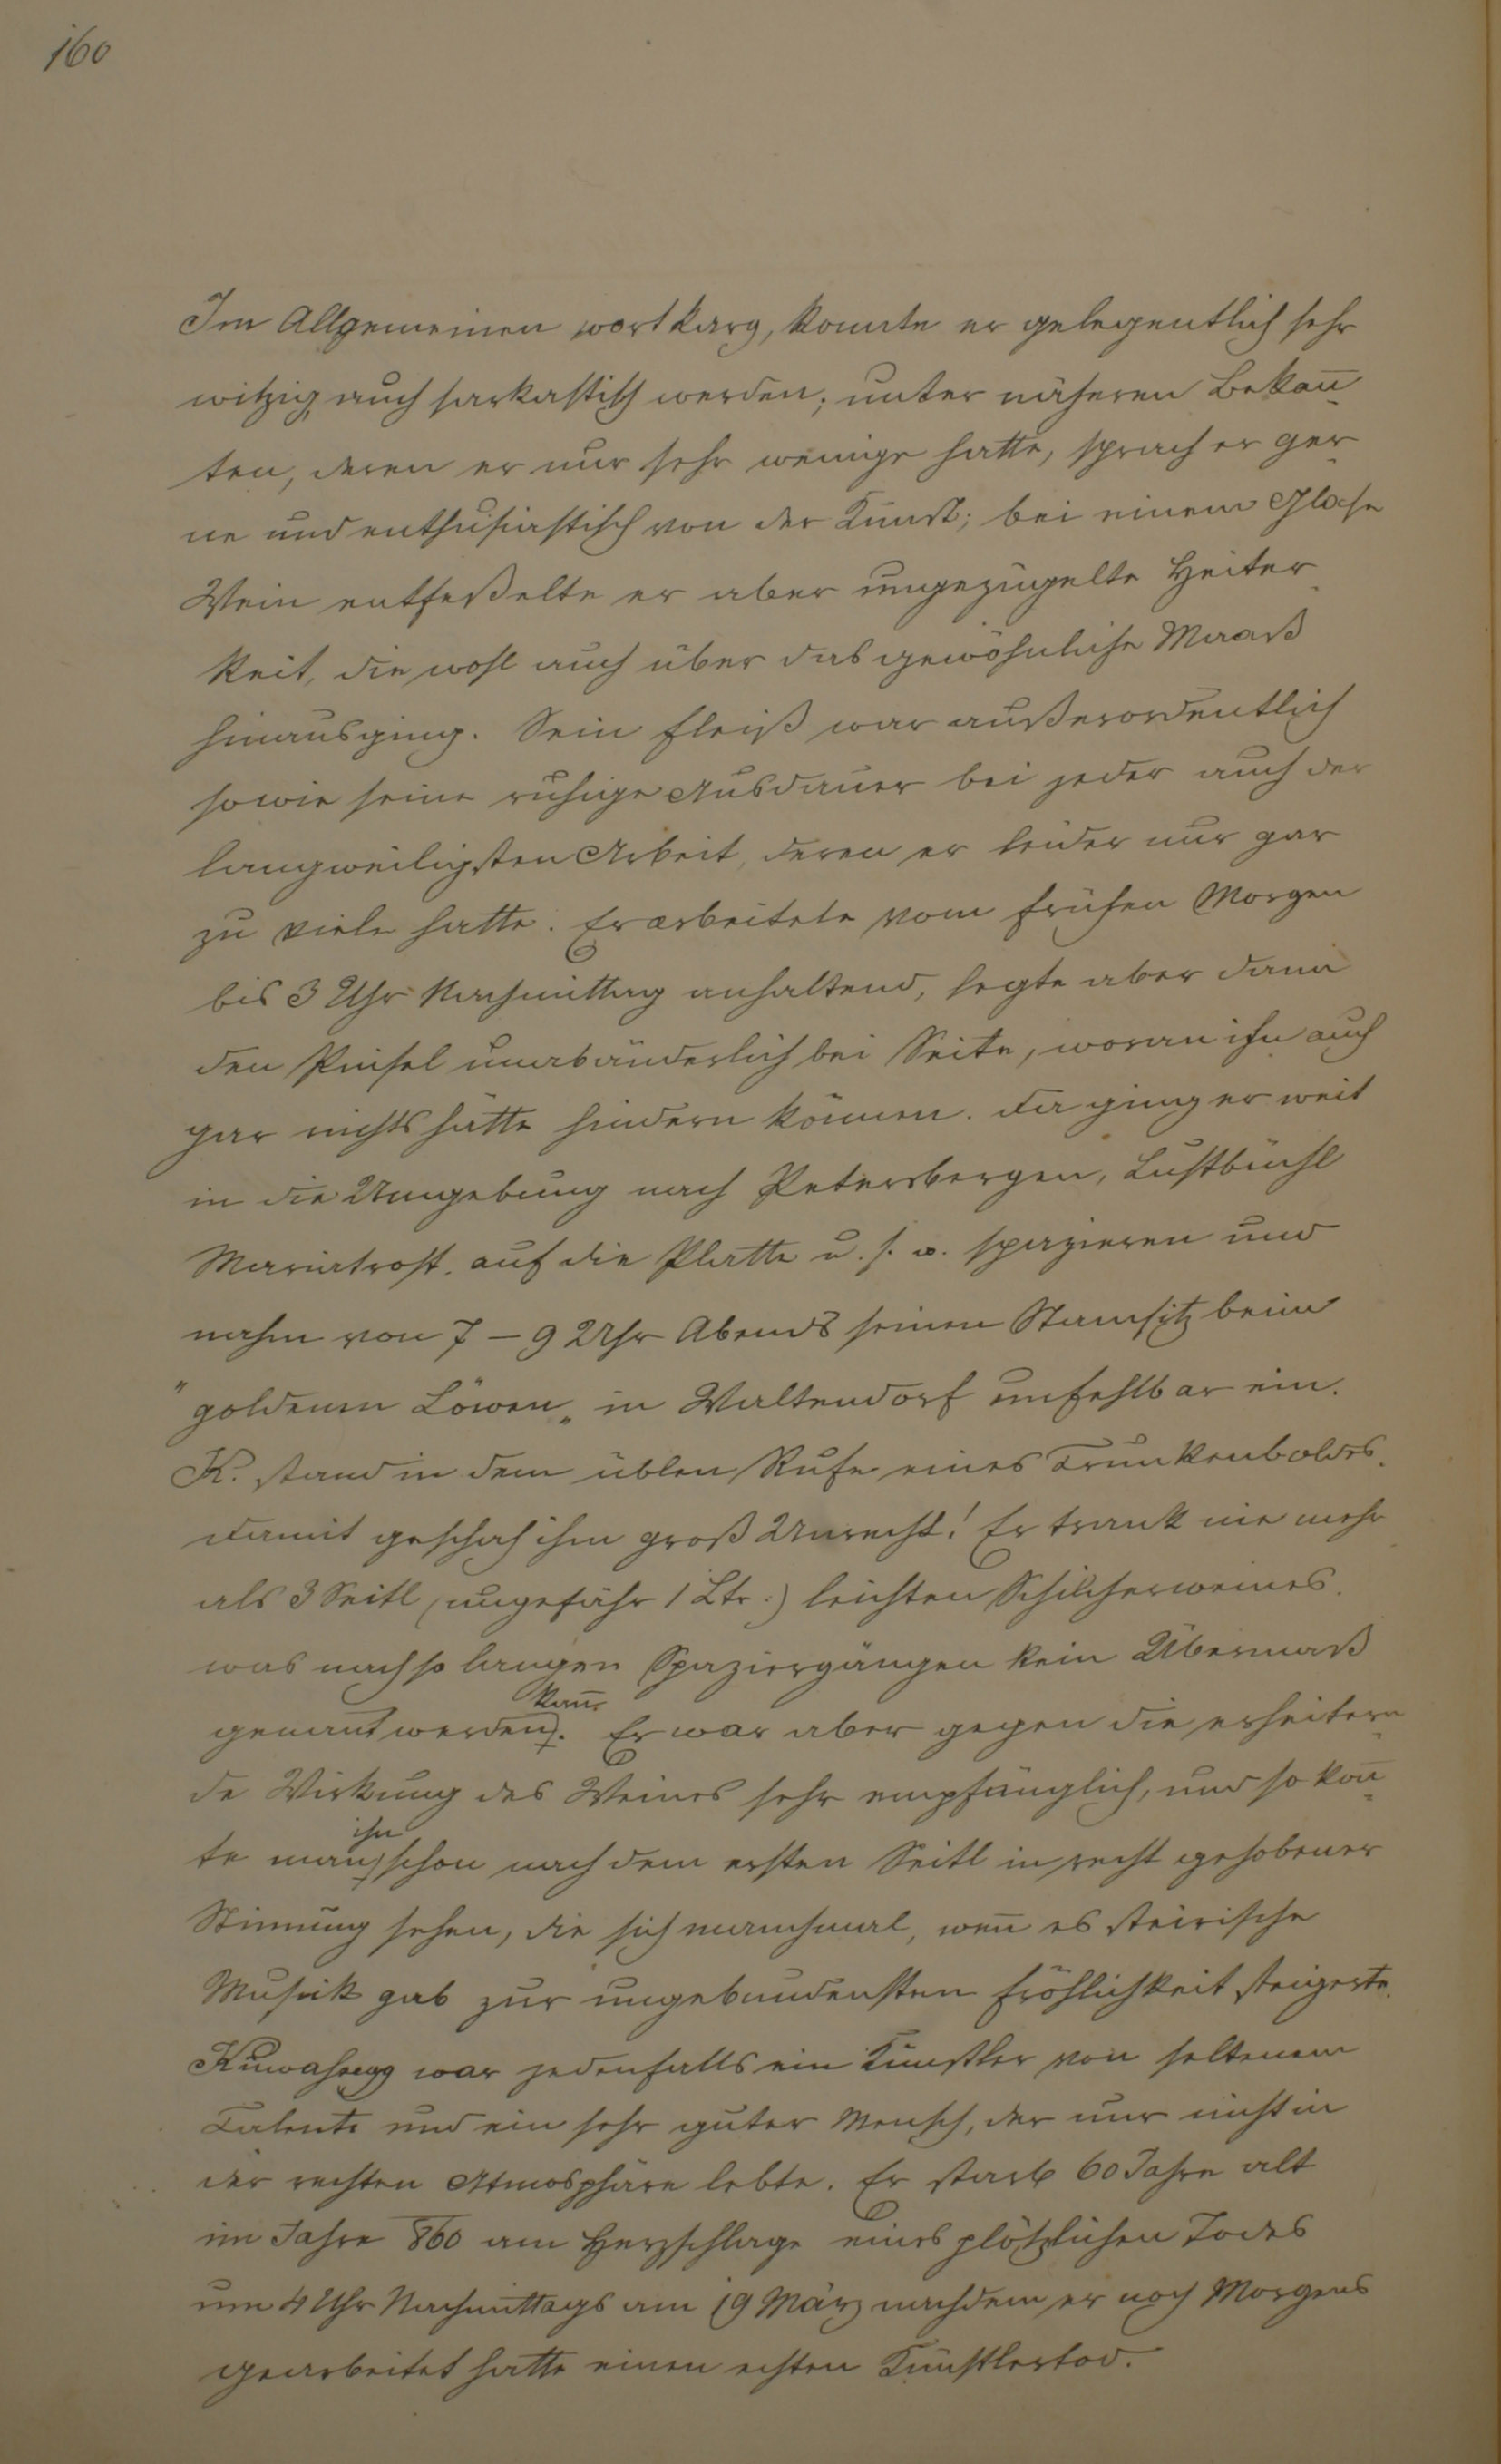 160
Im Allgemeinen wortkarg, konnte er gelegentlich sehr
witzig, auch sarkastisch werden; unter näheren Bekan̅
ten, deren er nur sehr wenige hatte, sprach er ger-
ne und enthusiastisch von der Kunst; bei einem Glase
Wein entfeßelte er aber ungezügelte Heiter-
keit, die wohl auch über das gewöhnliche Maaß
hinausging. Sein Fleiß war außerordentlich
sowie seine ruhige Ausdauer bei jeder auch der
langweiligsten Arbeit, deren er leider nur gar
zu viele hatte. Er arbeitete vom frühen Morgen
bis 3 Uhr Nachmittag anhaltend, legte aber dann
den Pinsel unabänderlich bei Seite, woran ihn auch
gar nichts hätte hindern können. Da ging er weit
in die Umgebung nach Petersbergen, Lustbüchl
Mariatrost, auf die Platte u. s. w. spazieren und
nahm von 7 – 9 Uhr Abends seinen Stamsitz beim
"goldenen Löwen„ in Waltendorf unfehlbar ein.
K. stand in dem üblen Rufe eines Trunkenboldes.
Damit geschah ihm groß Unrecht! Er trank nie mehr
als 3 Seitl (ungefähr 1 Ltr.) leichten Schilcherweines.
was nach so langen Spaziergängen kein Übermaß
kan̅
genant werden. Er war aber gegen die erheitern-
de Wirkung des Weines sehr empfänglich, und so kon̅-
ihn
te man schon nach dem ersten Seitl in recht gehobener
Stimung sehen, die sich manchmal, wen̅ es steirische
Musik gab zur ungebundensten Fröhlichkeit steigerte.
Kuwahsegg war jedenfalls ein Künstler von seltenem
Talente und ein sehr guter Mensch, der nur nicht in
der rechten Atmosphäre lebte. Er starb 60 Jahre alt
im Jahre 860 am Herzschlage eines plötzlichen Todes
um 4 Uhr Nachmittags am 19 März nachdem er noch Morgens
gearbeitet hatte einen echten Künstlertod.